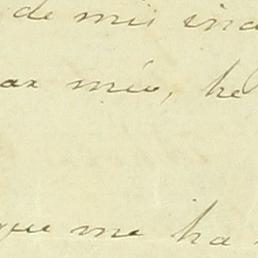 de mis
mio, he
que me ha